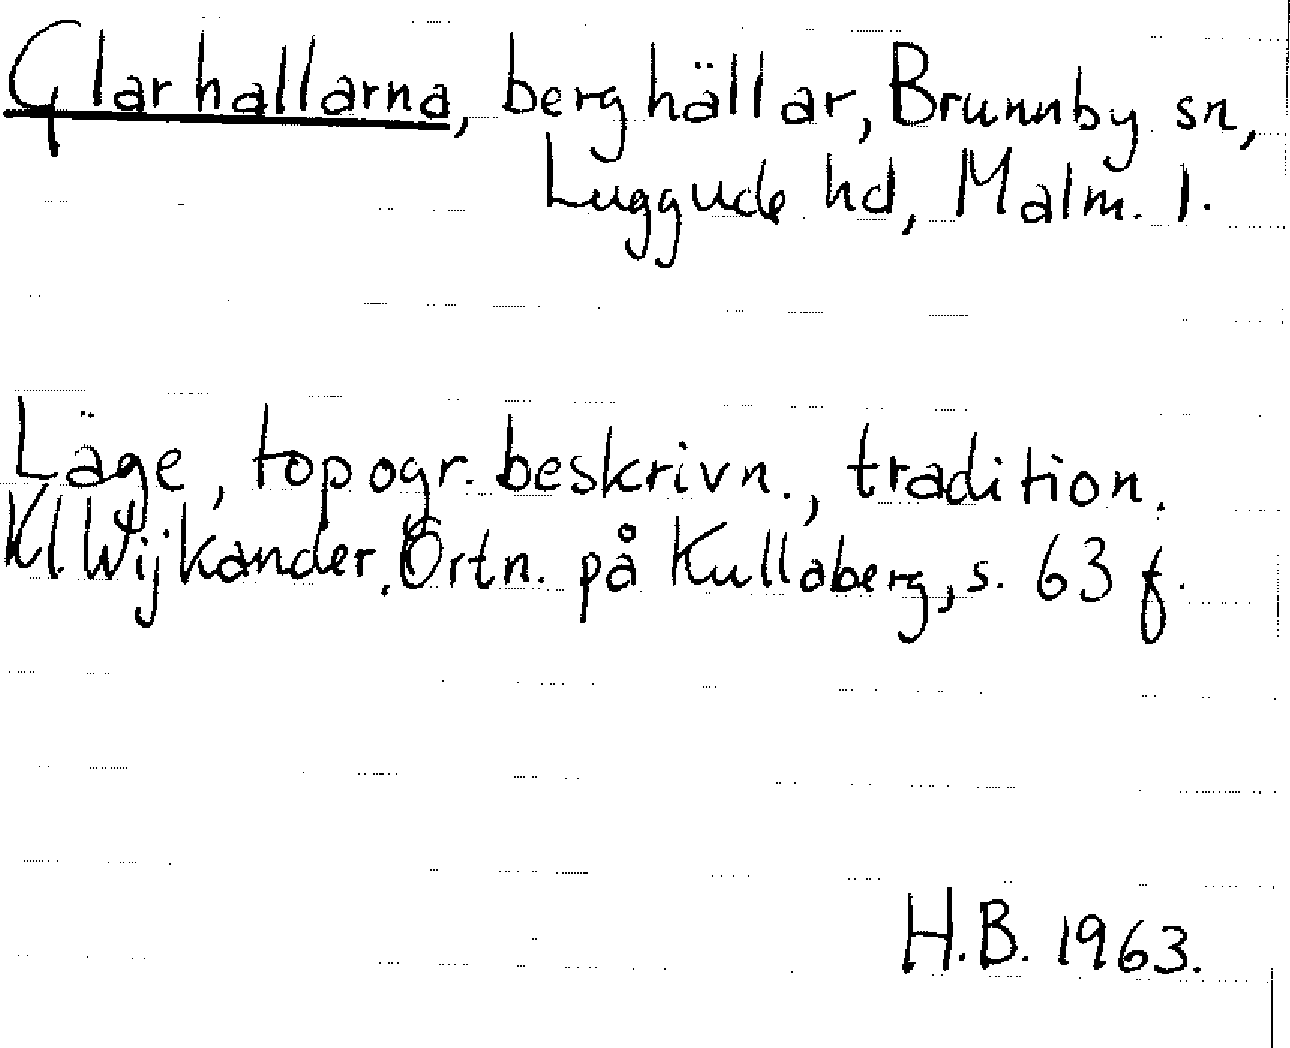 Glarhallarna, berghällar, Brunnby sn,
Luggude hd, Malm. l.
Läge, topogr. beskrivn., tradition.
Kl Wijkander, Ortn. på Kullaberg, s. 63 f.
H.B. 1963.